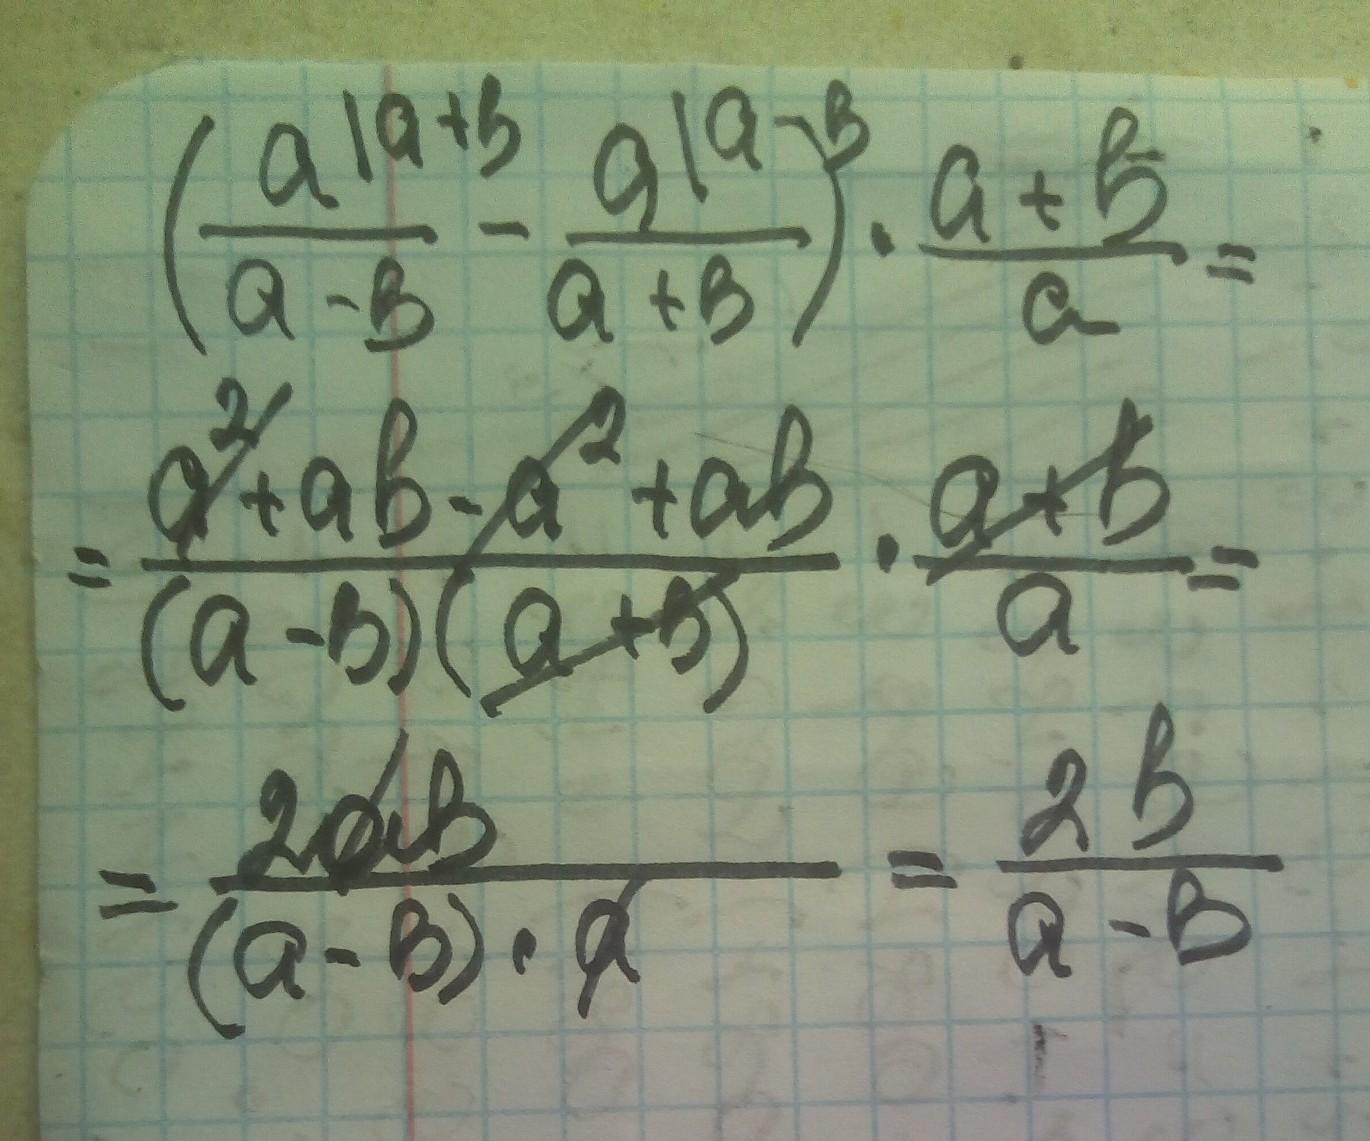 (a|a+b / a-b - a|a-b / a+b) · a+b / a =
= a²+ab-a²+ab / (a-b)(a+b) · a+b / a =
= 2ab / (a-b)·a = 2b / a-b